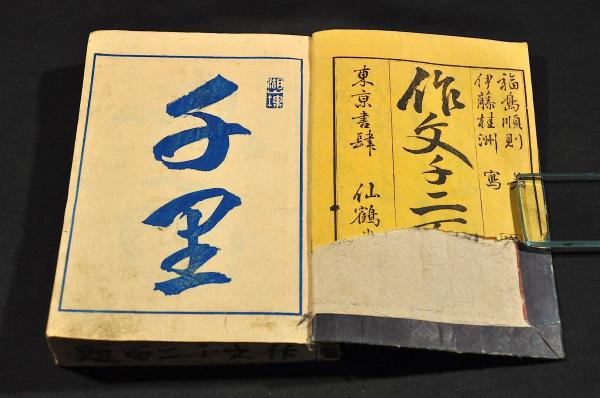 福島順則
伊藤桂洲 寫
作文千二
東京書肆 仙鶴
千里
作文千二百題